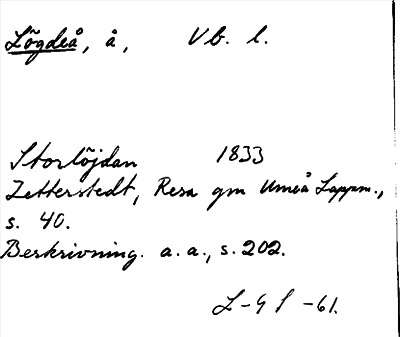 Lögdeå, å, Vb. l.
Storlöjdan 1833
Zetterstedt, Resa gm Umeå Lappm.,
s. 40.
Beskrivning. a. a., s. 202.
L-G S -61.